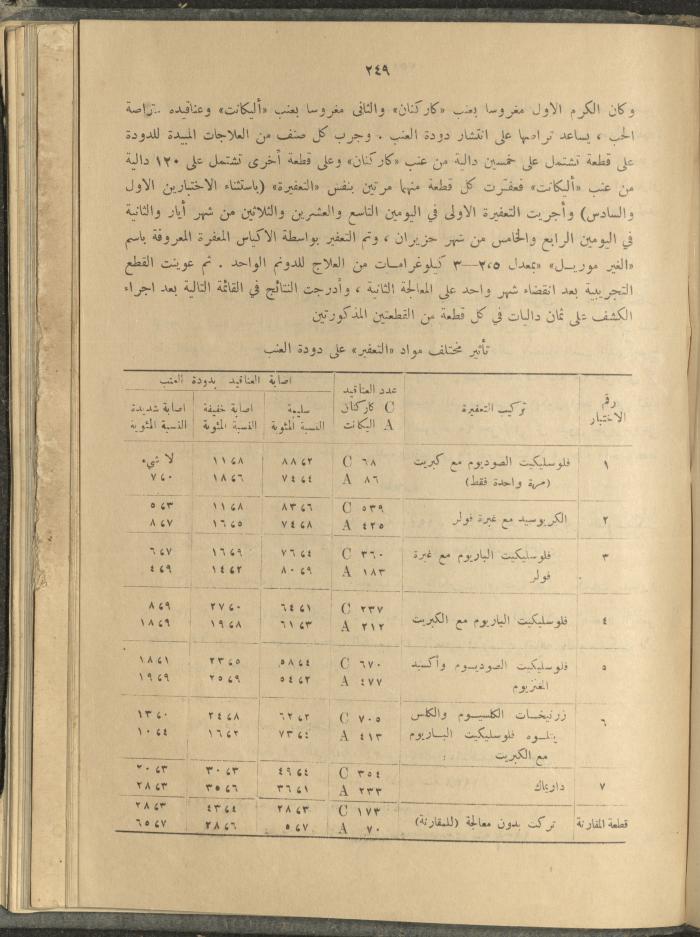 ٢٤٩
وكان الكرم الاول مغروسا بعنب «كاركنان» والثاني مغروسا بعنب «أليكانت» وعناقيده متراصة
الحب ، يساعد تراصها على انتشار دودة العنب . وجرب كل صنف من العلاجات المبيدة للدودة
على قطعة تشتمل على خمسين دالية من عنب «كاركنان» وعلى قطعة أخرى تشتمل على ١٢٠ دالية
من عنب «أليكانت» فعفرت كل قطعة منهما مرتين بنفس «التعفيرة» (باستثناء الاختبارين الاول
والسادس) وأجريت التعفيرة الاولى في اليومين التاسع والعشرين والثلاثين من شهر أيار والثانية
في اليومين الرابع والخامس من شهر حزيران ، وتم التعفير بواسطة الاكياس المعفرة المعروفة باسم
«الغير موريسل» بمعدل ٢،٥—٣ كيلوغرامات من العلاج للدونم الواحد . ثم عوينت القطع
التجريبية بعد انقضاء شهر واحد على المعالجة الثانية ، وأدرجت النتائج في القائمة التالية بعد اجراء
الكشف على ثمان داليات في كل قطعة من القطعتين المذكورتين
تأثير مختلف مواد «التعفير» على دودة العنب
رقم الاختبار | تركيب التعفيرة | عدد العناقيد C كاركنان A اليكانت | اصابة العناقيد بدودة العنب
سليمة النسبة المئوية | اصابة خفيفة النسبة المئوية | اصابة شديدة النسبة المئوية
١ فلوسليكيت الصوديوم مع كبريت C ٦٨ ٨٨،٢ ١١،٨ لا شيء
(مرة واحدة فقط) A ٨٦ ٧٤،٤ ١٨،٦ ٧،٠
٢ الكريوسيد مع غبرة فولر C ٥٣٩ ٨٣،٦ ١١،٨ ٥،٣
A ٤٢٥ ٧٤،٨ ١٦،٥ ٨،٧
٣ فلوسليكيت الباريوم مع غبرة C ٣٦٠ ٧٦،٤ ١٦،٩ ٦،٧
فولر A ١٨٣ ٨٠،٩ ١٤،٢ ٤،٩
٤ فلوسليكيت الباريوم مع الكبريت C ٢٣٧ ٦٤،١ ٢٧،٠ ٨،٩
A ٢١٢ ٦١،٣ ١٩،٨ ١٨،٩
٥ فلوسليكيت الصوديوم وأكسيد C ٦٧٠ ٥٨،٤ ٢٣،٥ ١٨،١
المغنزيوم A ٤٧٧ ٥٤،٢ ٢٥،٩ ١٩،٩
٦ زرنيخات الكلسيوم والكلس C ٧٠٥ ٦٢،٢ ٢٤،٨ ١٣،٠
يتلوه فلوسليكيت الباريوم A ٤١٣ ٧٣،٤ ١٦،٢ ١٠،٤
مع الكبريت
٧ داريماك C ٣٥٤ ٤٩،٤ ٣٠،٣ ٢٠،٣
A ٢٣٣ ٣٦،١ ٣٥،٦ ٢٨،٣
قطعة المقارنة تركت بدون معالجة (للمقارنة) C ١٧٣ ٢٨،٣ ٤٣،٤ ٢٨،٣
A ٧٠ ٥،٧ ٢٨،٦ ٦٥،٧